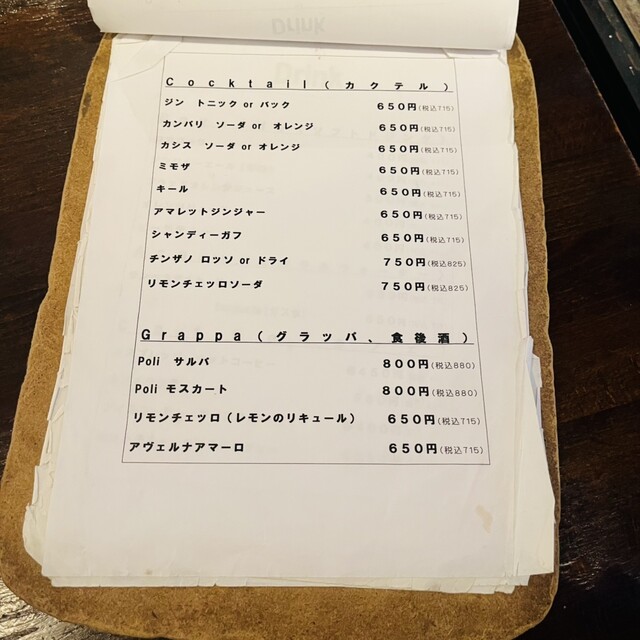 Drink
Cocktail(カクテル)
ジン トニック or バック 650円(税込715)
カンパリ ソーダ or オレンジ 650円(税込715)
カシス ソーダ or オレンジ 650円(税込715)
ミモザ 650円(税込715)
キール 650円(税込715)
アマレットジンジャー 650円(税込715)
シャンディーガフ 650円(税込715)
チンザノ ロッソ or ドライ 750円(税込825)
リモンチェッロソーダ 750円(税込825)
Grappa(グラッパ、食後酒)
Poli サルパ 800円(税込880)
Poli モスカート 800円(税込880)
リモンチェッロ(レモンのリキュール) 650円(税込715)
アヴェルナアマーロ 650円(税込715)